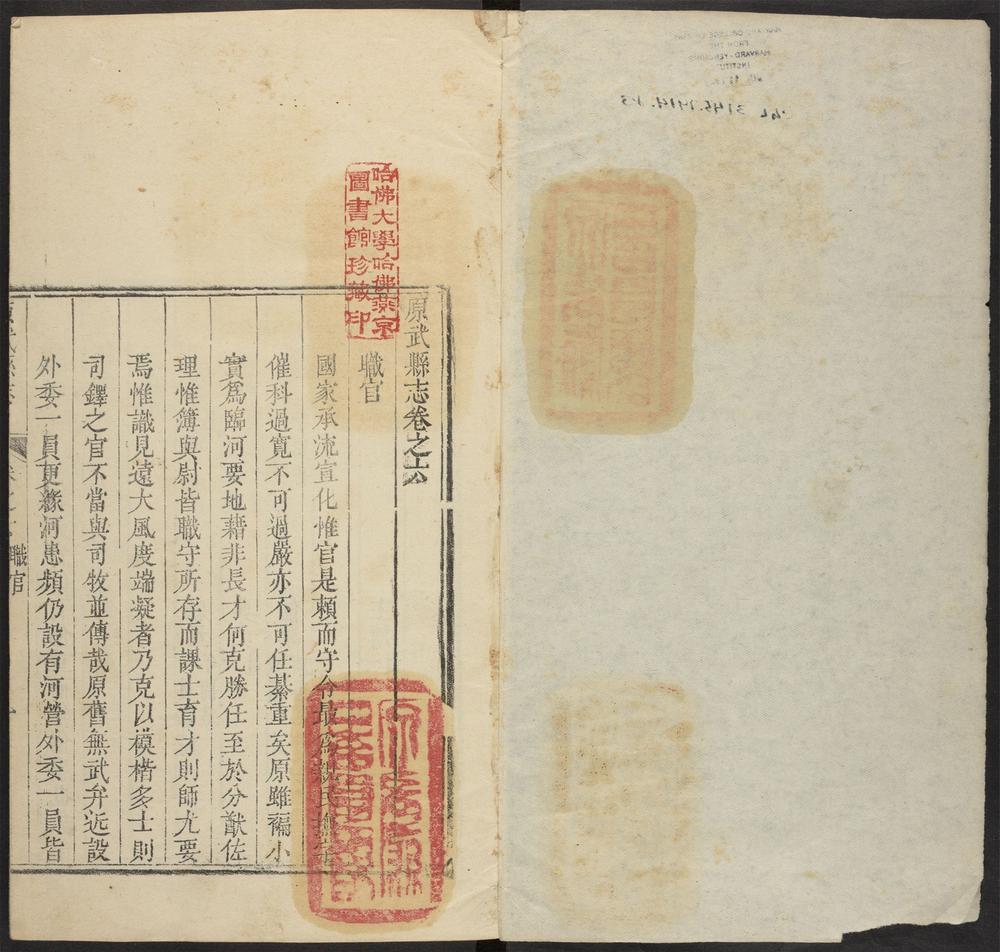 原武縣志卷之六
職官
國家承流宣化惟官是頼而守令最為親民撫字
催科過寛不可過嚴亦不可任綦重矣原雖褊小
實爲臨河要地藉非長才何克勝任至於分猷佐
理惟簿與尉皆職守所存而課士育才則師尤要
焉惟識見遠大風度端凝者乃克以模楷多士則
司鐸之官不當與司牧並傳哉原舊無武弁近設
外委一員更緣河患頻仍設有河營外委一員皆
職官
哈佛大學哈佛燕京
圖書館珍藏印